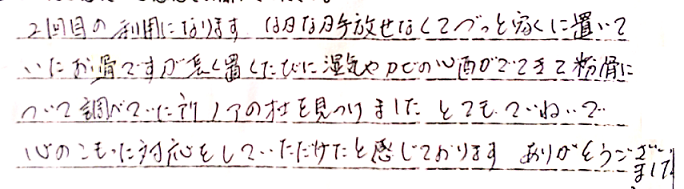 2回目の利用になります なかなか手放せなくてずっと家に置いて
いたお骨ですが長く置くたびに湿気やカビの心配がでてきて粉骨に
ついて調べていた所 の社を見つけました とてもていねいで
心のこもった対応をしていただけたと感じております ありがとうござい
ました